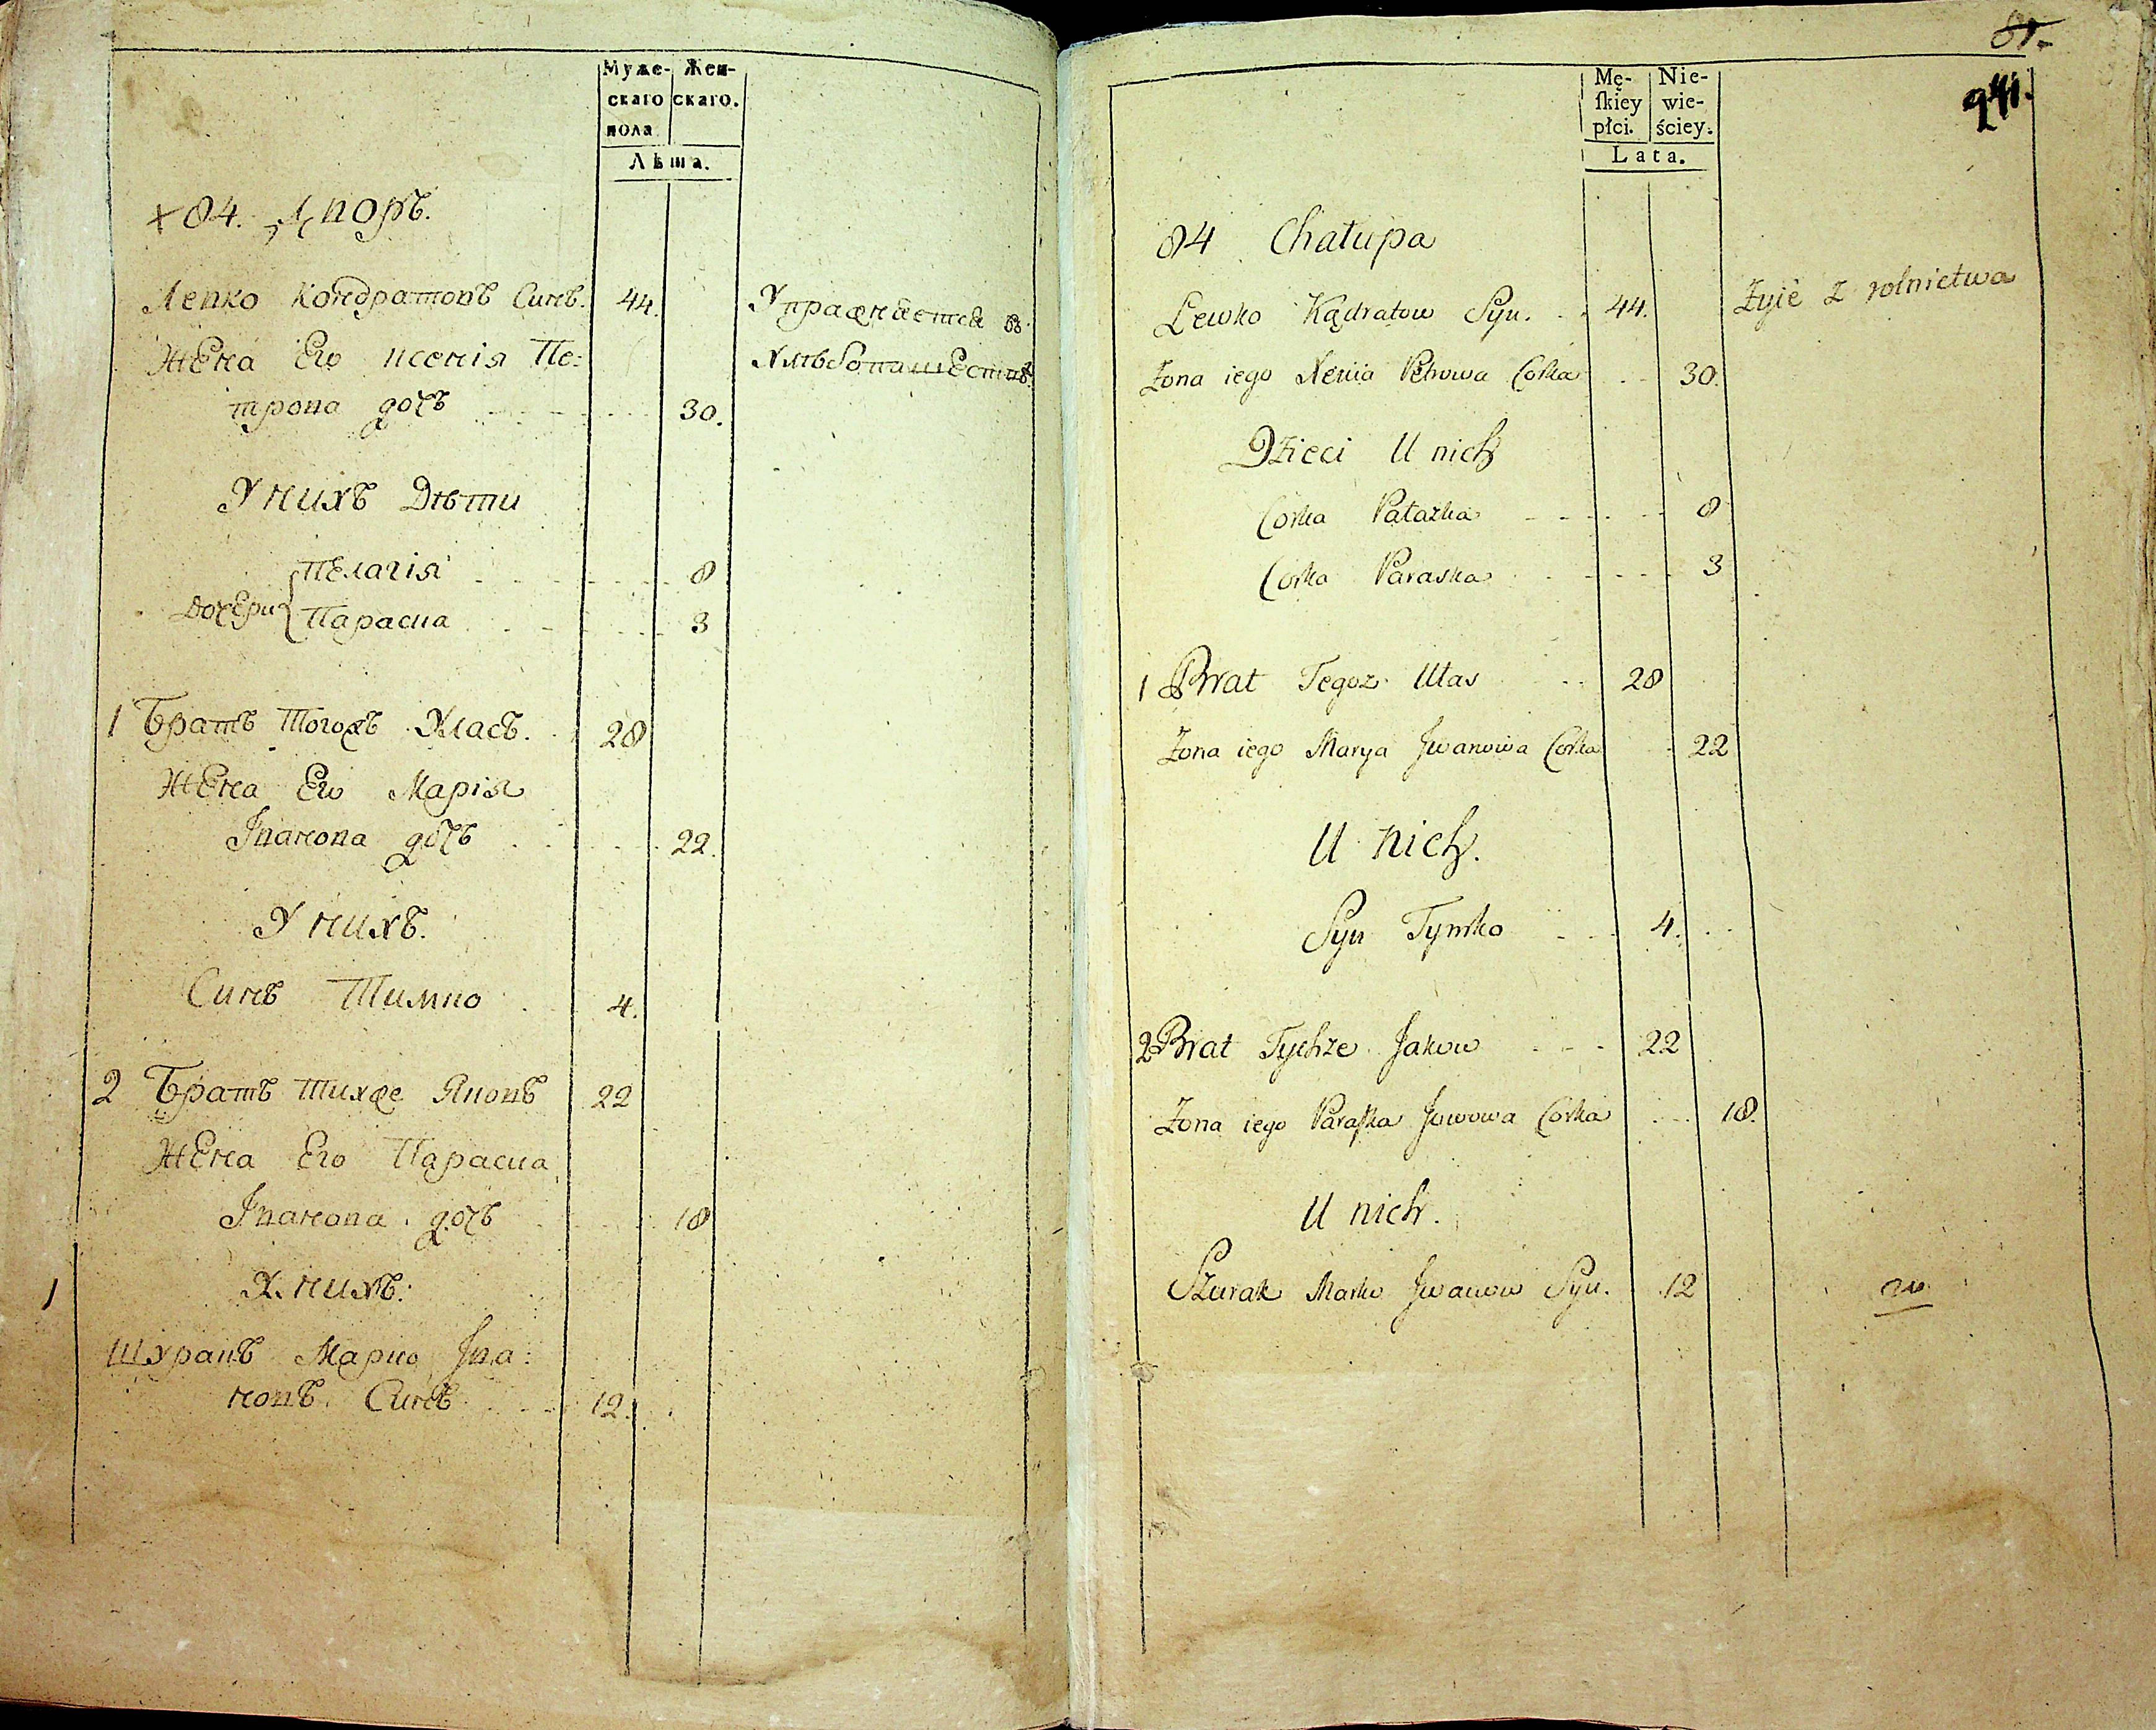 Муже- Жен-
скаго скаго.
пола
Лѣта.
+ 84. Дворъ.
Левко Кондратовъ Синъ. 44. Упражняется въ
Жена Его Ксенія Пе: Хлѣбопашествѣ.
трова дочъ 30.
У нихъ Дѣти
Пелагія 8
Дочери
Параска 3
1 Братъ Тогожъ Уласъ. 28
Жена Его Марія
Іванова дочъ 22.
У нихъ.
Синъ Тимко 4.
2 Братъ Тихже Яковъ 22
Жена Его Параска
Іванова дочъ 18
1 У нихъ:
Шуракъ Марко Іва:
новъ Синъ 12.
81.
241.
Mę- Nie-
ſkiey wie-
płci. ściey.
Lata.
84 Chałupa
Lewko Kądratow Syn. 44. Żyie z rolnictwa
Żona iego Xenia Petrowa Corka 30.
Dzieci U nich
Corka Patazka 8
Corka Paraska 3
1 Brat Tegoz Ułas 28
Żona iego Marya Jwanowa Corka 22
U nich.
Syn Tymko 4.
2 Brat Tychże Jakow 22
Żona iego Paraſka Jwowa Corka 18.
U nich.
Szurak Marko Jwanow Syn. 12